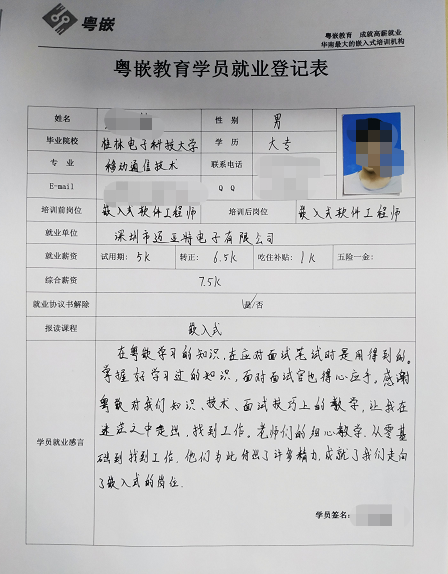 粤嵌
粤嵌教育 成就高薪就业
华南最大的嵌入式培训机构
粤嵌教育学员就业登记表
姓名 性 别 男
毕业院校 桂林电子科技大学 学 历 大专
专 业 移动通信技术 联系电话
E-mail Q Q
培训前岗位 嵌入式软件工程师 培训后岗位 嵌入式软件工程师
就业单位 深圳市迈亚特电子有限公司
就业薪资 试用期: 5k 转正: 6.5k 吃住补贴: 1k 五险一金:
综合薪资 7.5k
就业协议书解除 是/否
报读课程 嵌入式
在粤嵌学习的知识,在应对面试笔试时是用得到的。
掌握好学习过的知识,面对面试官也得心应手。感谢
粤嵌对我们知识、技术、面试技巧上的教学,让我在
迷茫之中走出,找到工作。老师们的细心教学,从零基
学员就业感言
础到找到工作,他们为此付出了许多精力,成就了我们走向
了嵌入式的岗位.
学员签名: